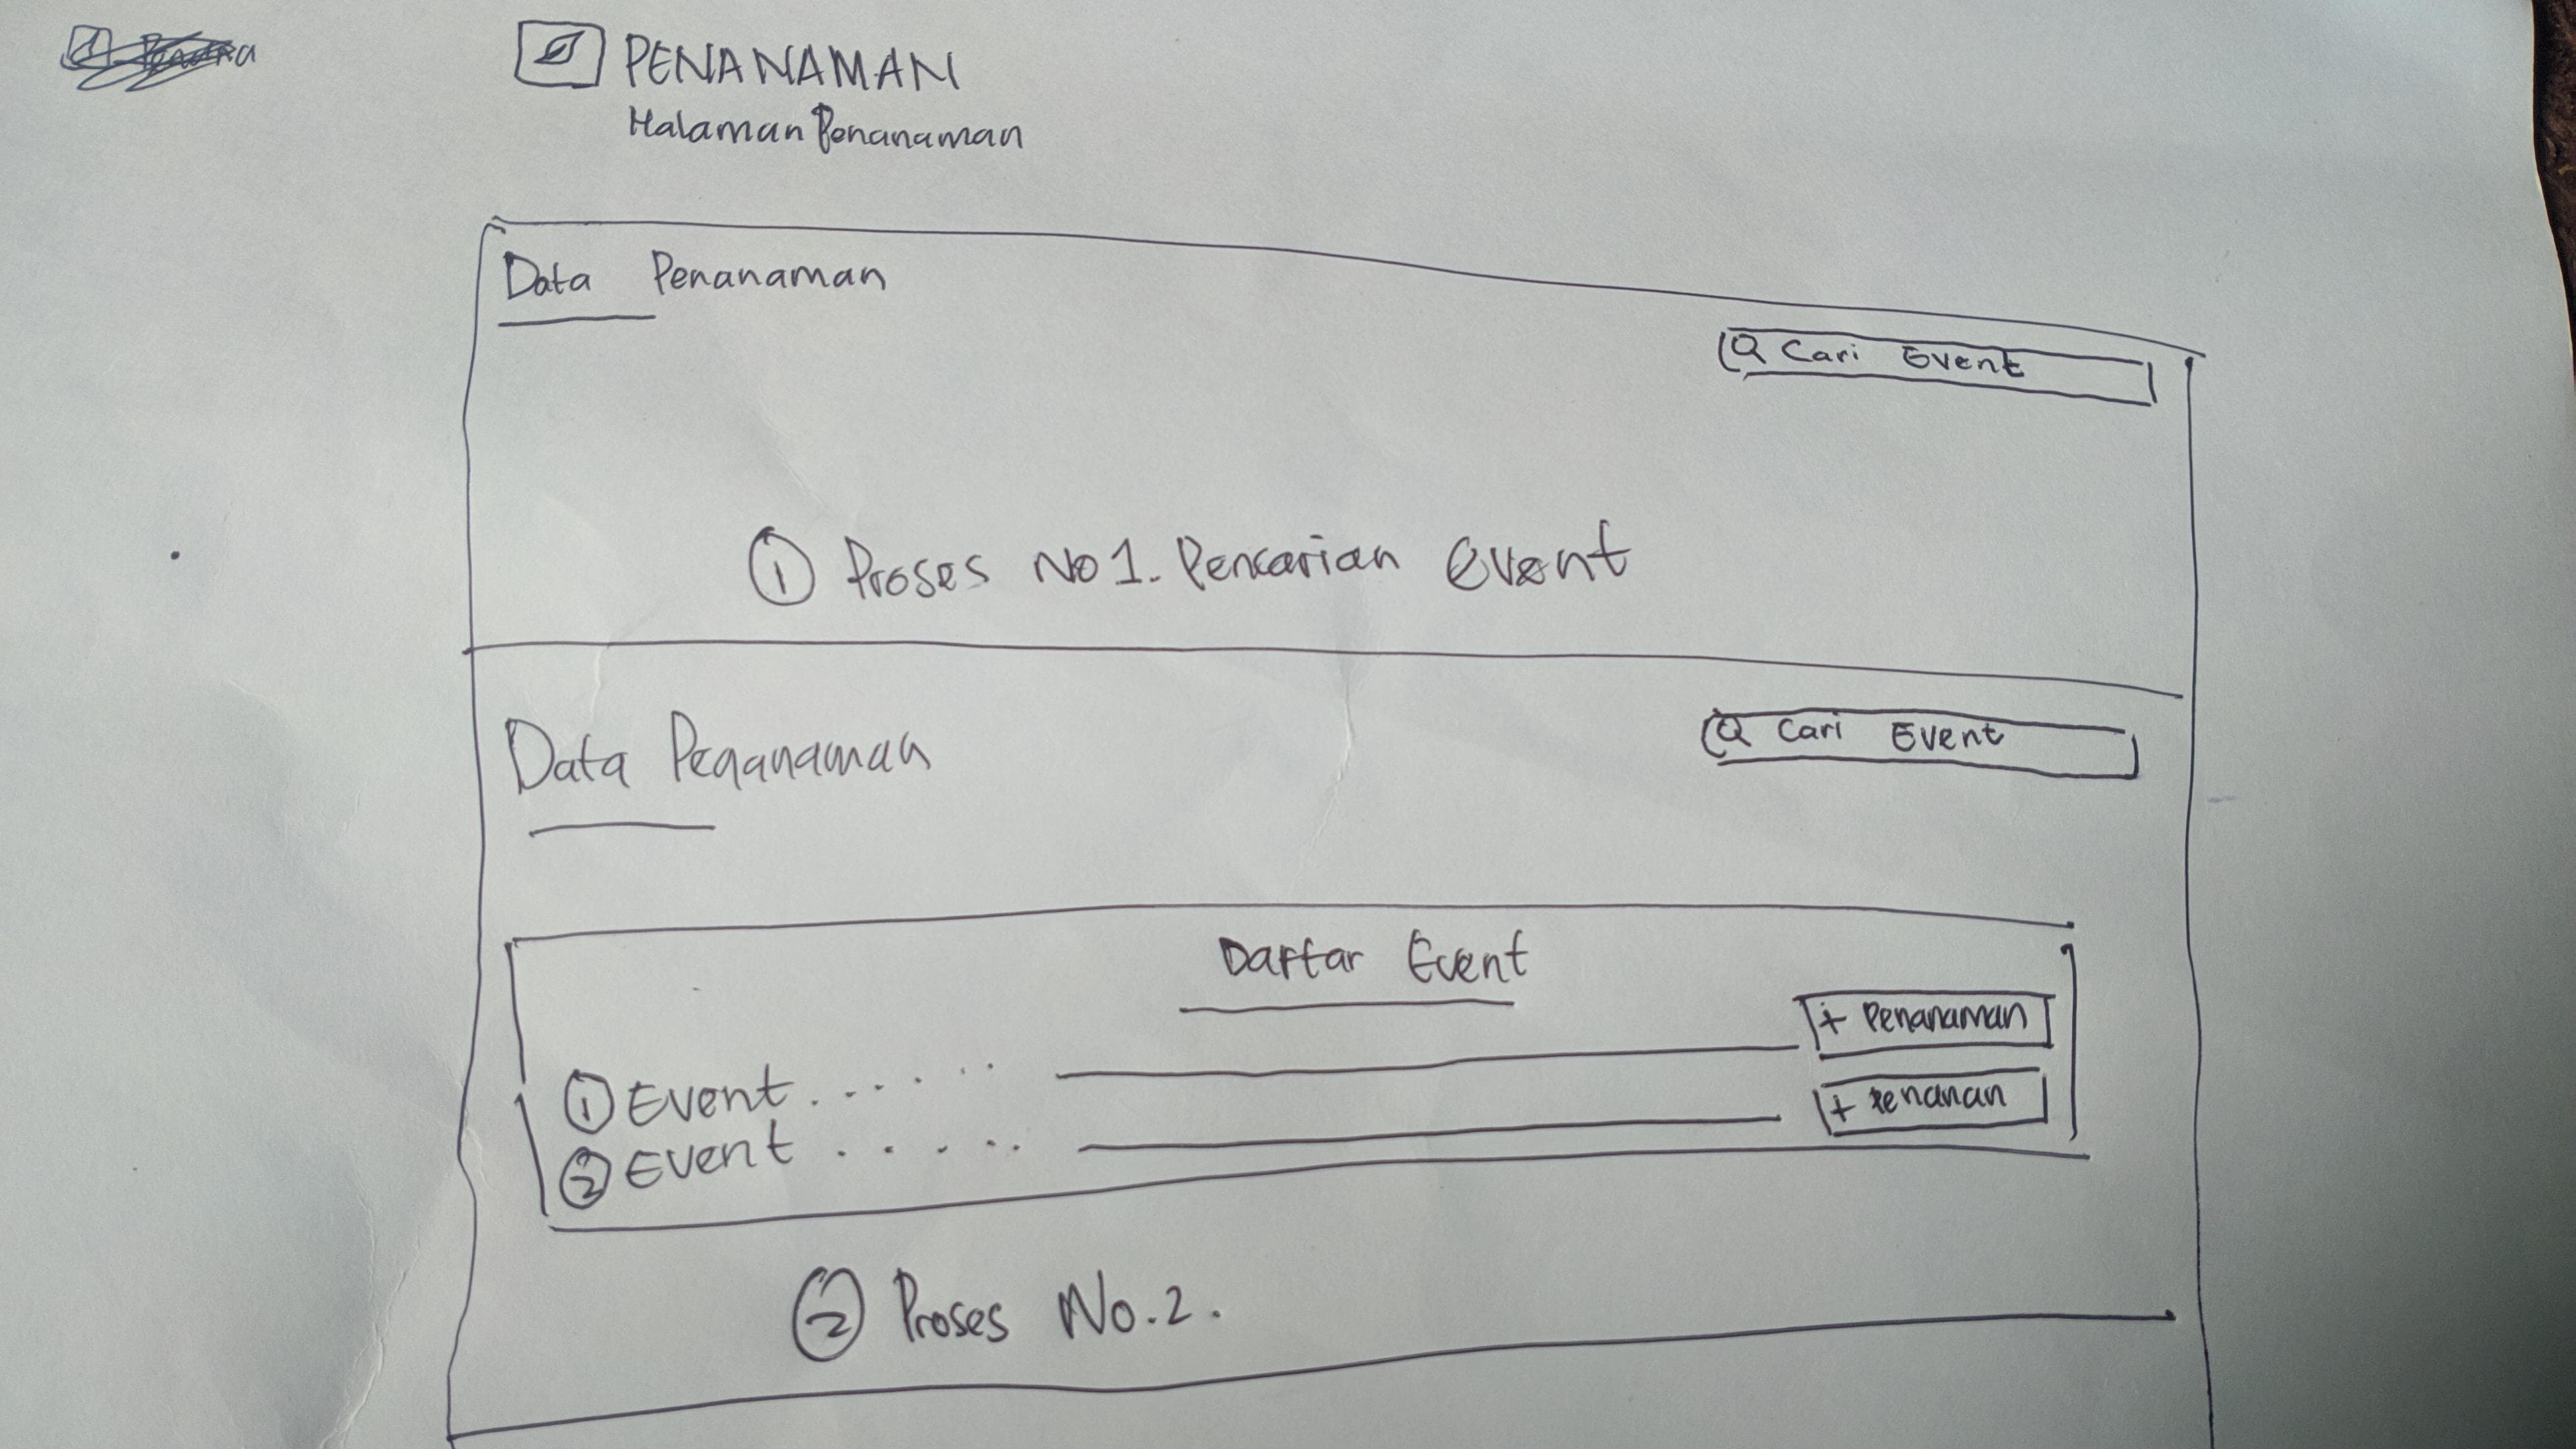 PENANAMAN
Halaman Penanaman
Data Penanaman
Cari Event
① Proses No 1. Pencarian Event
Data Penanaman
Cari Event
Daftar Event
+ Penanaman
① Event . . . . . .
+ Penanan
② Event . . . . .
② Proses No. 2.